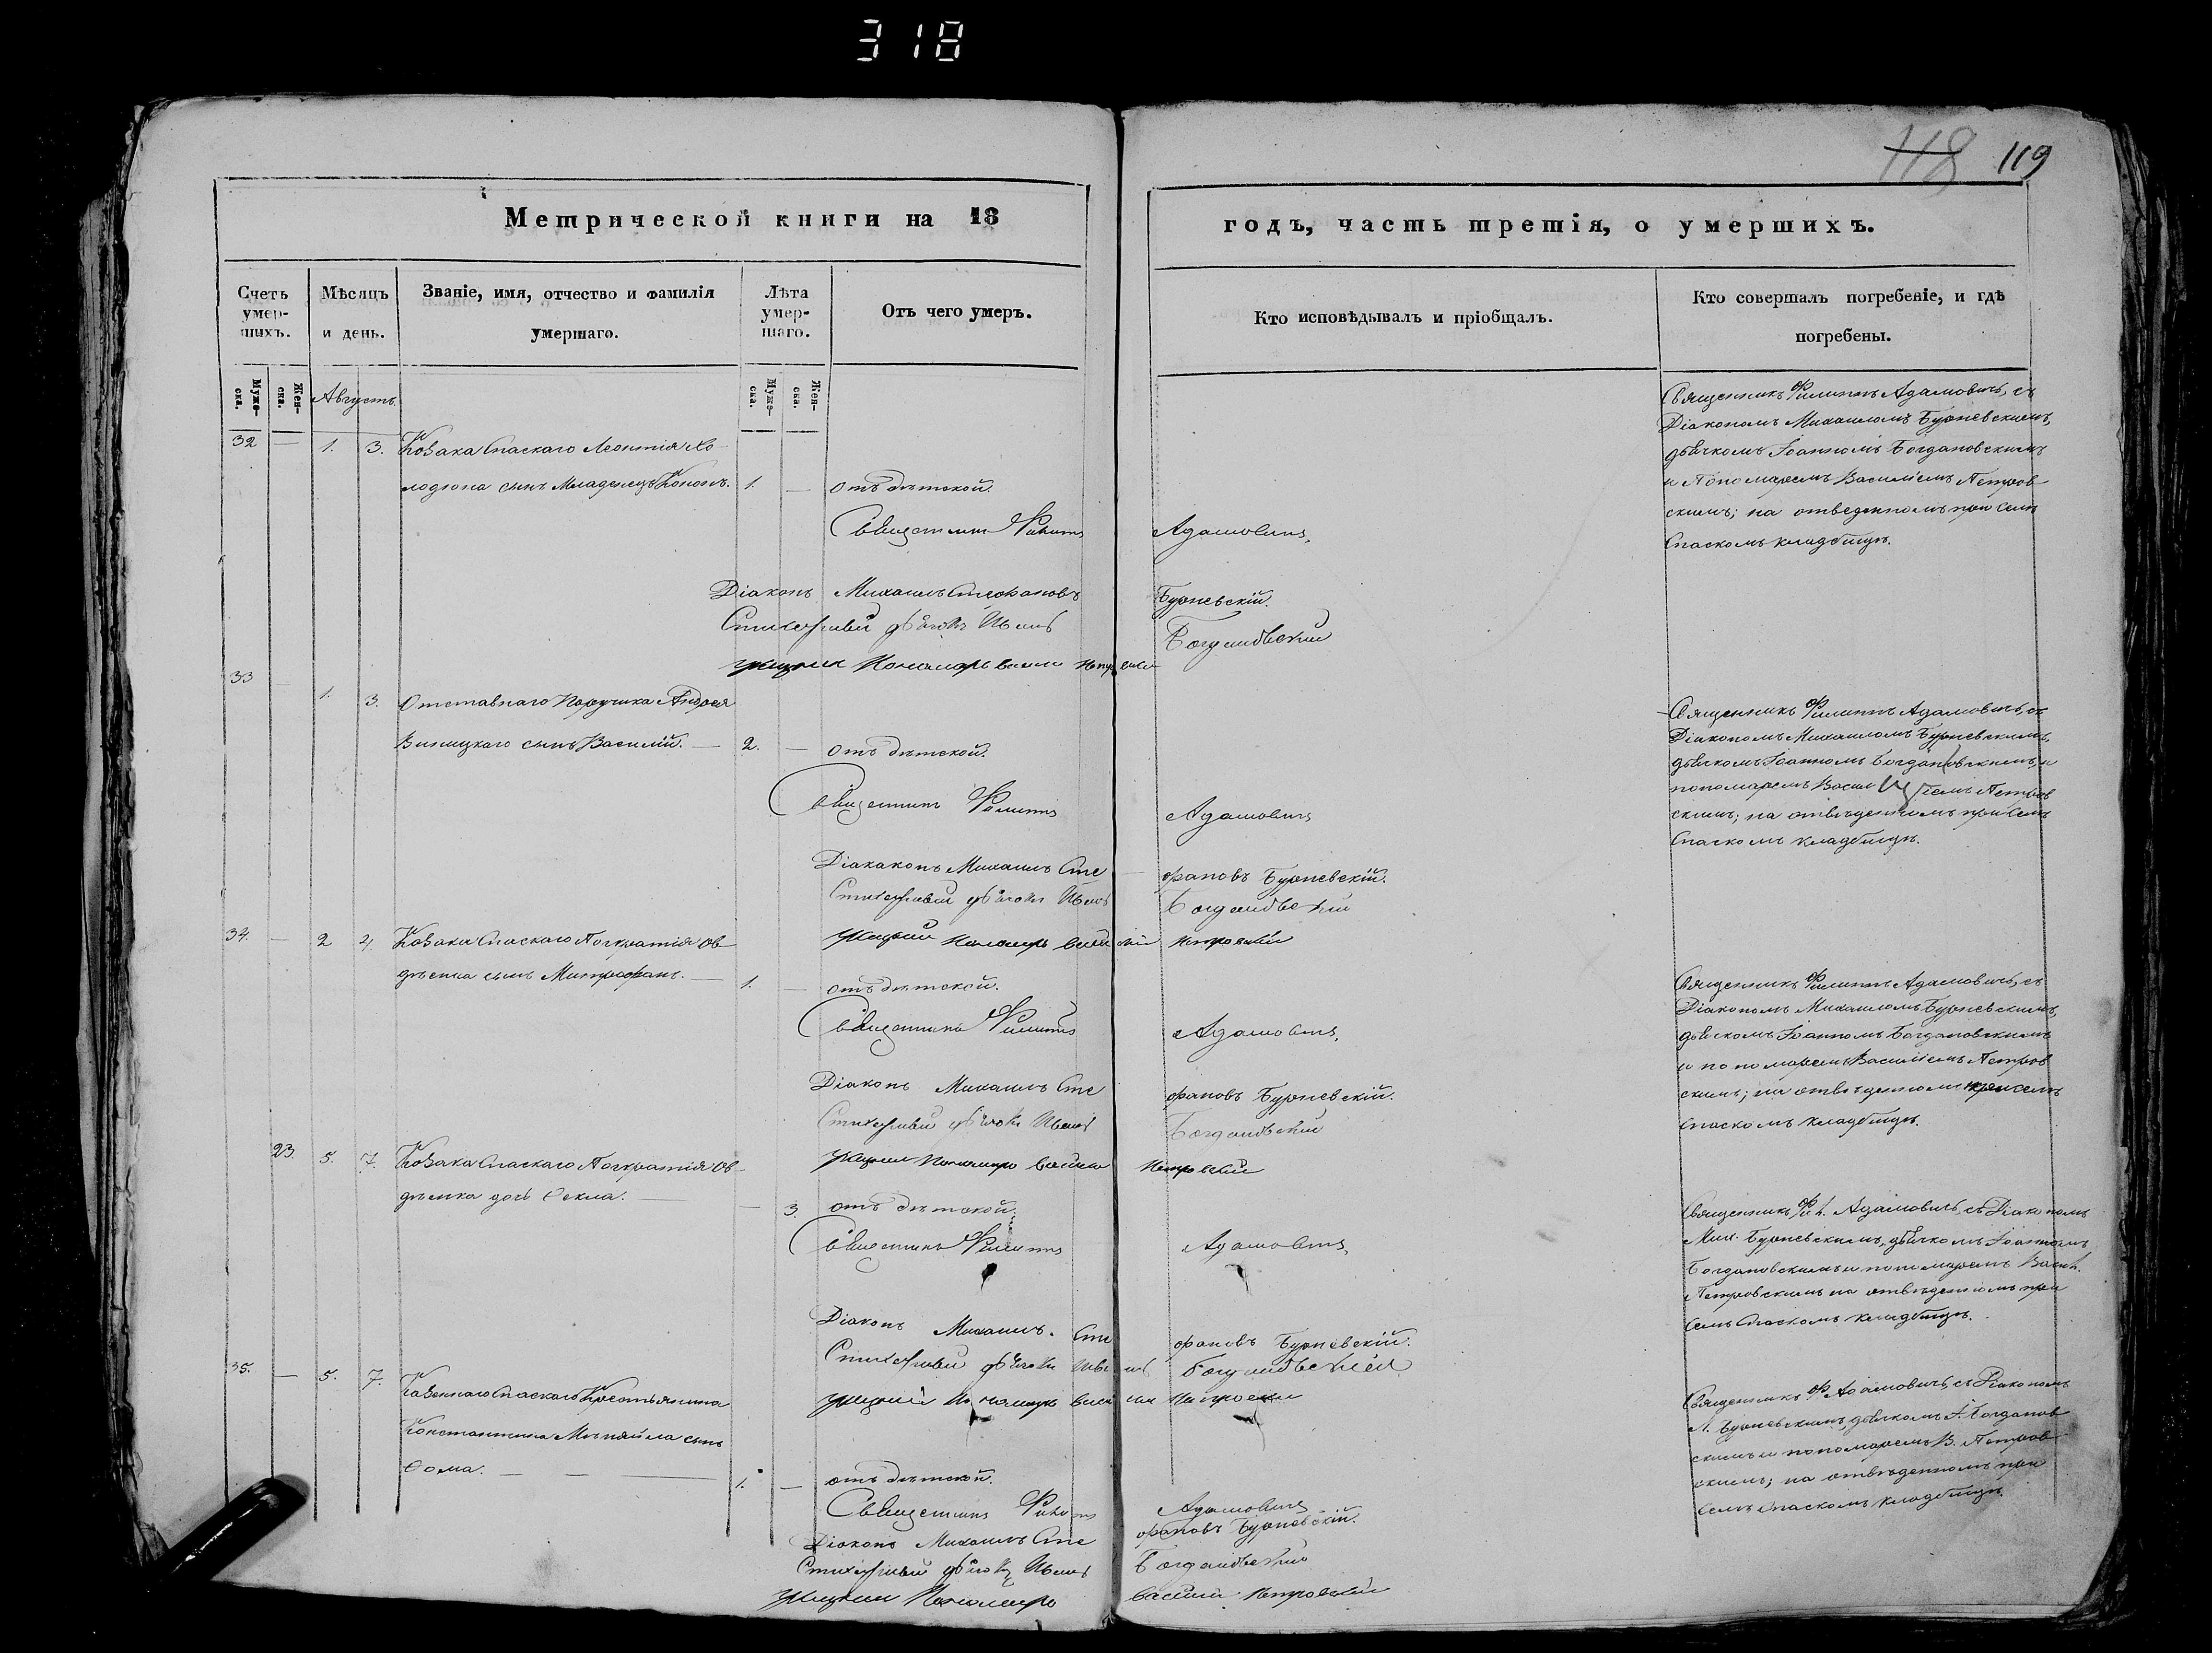 318
118 119
Метрической книги на 18
годъ, часть третія, о умершихъ.
Счетъ умер-шихъ.
Мѣсяцъ и день.
Званіе, имя, отчество и фамилія умершаго.
Лѣта умер-шаго.
Отъ чего умеръ.
Кто исповѣдывалъ и пріобщалъ.
Кто совершалъ погребеніе, и гдѣ погребены.
Муже-ска.
Жен-ска.
Августъ.
Муже-ска.
Жен-ска.
Священникъ Филиппъ Адамовичъ, съ
Діакономъ Михаиломъ Бурневскимъ,
дьячкомъ Іоанномъ Богдановскимъ
и Пономаремъ Василіемъ Петров-
скимъ; на отведенномъ при селѣ
Спаскомъ кладбищѣ.
32 — 1. 3. Козака Спаскаго Леонтія Хо-
лодюна сынъ Младенецъ Кононъ. 1. — отъ дѣтской.
Священникъ Филиппъ Адамовичъ
Діаконъ Михаилъ Стефановъ Бурневскій.
Стихарный дьячокъ Иванъ Богдановскій
Пономарь Василій Петровскій
33 — 1. 3. Отставнаго Поручика Андрея
сынъ Василій. — 2. — отъ дѣтской.
Священникъ Филиппъ Адамовичъ
Діакаконъ Михаилъ Сте фановъ Бурневскій.
Стихарный дьячокъ Иванъ Богдановскій
Пономарь Василій Петровскій
Священникъ Филиппъ Адамовичъ, съ
Діакономъ Михаиломъ Бурневскимъ,
дьячкомъ Іоанномъ Богдановскимъ, и
пономаремъ Василіемъ Петров
скимъ; на отвѣденномъ при селѣ
Спаскомъ кладбищѣ.
34. — 2 4. Козака Спаскаго Ов-
дѣенка сынъ Митрофанъ. — 1. — отъ дѣтской.
Священникъ Филиппъ Адамовичъ,
Діаконъ Михаилъ Сте фановъ Бурневскій.
Стихарный дьячокъ Иванъ Богдановскій
Пономарь Василій Петровскій
Священникъ Филиппъ Адамовичъ, съ
Діакономъ Михаиломъ Бурневскимъ,
дьячкомъ Іоанномъ Богдановскимъ
и пономаремъ Василіемъ Петров
скимъ; на отвѣденномъ при селѣ
Спаскомъ кладбищѣ.
23. 5. 7. Козака Спаскаго Ов-
дѣенка дочь Ѳекла. — — 3. отъ дѣтской.
Священникъ Филиппъ Адамовичъ,
Діаконъ Михаилъ. Сте фановъ Бурневскій.
Стихарный дьячокъ Иванъ Богдановскій
Пономарь Василій Петровскій
Священникъ Фил. Адамовичъ, съ Діакономъ
Мих. Бурневскимъ, дьячкомъ Іоанномъ
Богдановскимъ и пономаремъ Васил.
Петровскимъ на отвѣденномъ при
селѣ Спаскомъ кладбищѣ.
35. — 5. 7. Казеннаго Спаскаго Крестьянина
Константина сынъ
Ѳома. — — — 1. — отъ дѣтской.
Священникъ Филиппъ Адамовичъ
Діаконъ Михаилъ Сте фановъ Бурневскій.
Стихарный дьячокъ Иванъ Богдановскій
Пономарь Василій Петровскій
Священникъ Ф. Адамовичъ, съ Діакономъ
М. Бурневскимъ, дьячкомъ І. Богданов
скимъ и пономаремъ В. Петров
скимъ; на отвѣденномъ при
селѣ Спаскомъ кладбищѣ.